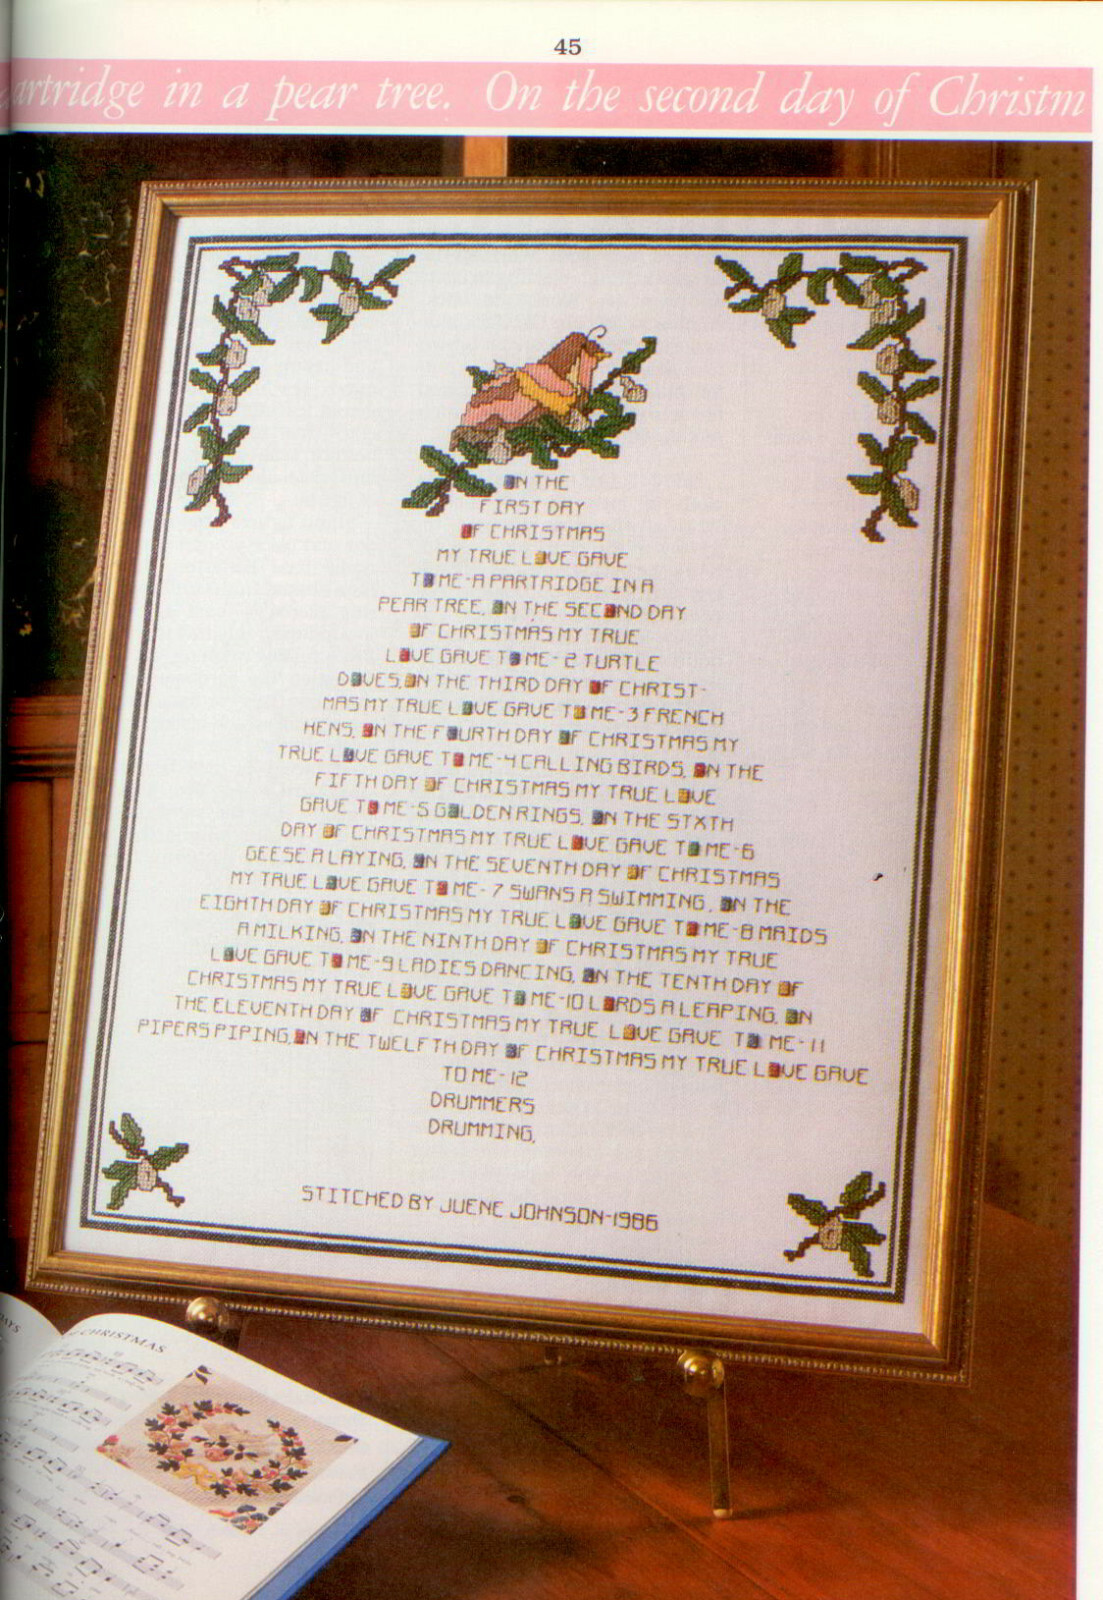 45
artridge in a pear tree. On the second day of Christm
ON THE
FIRST DAY
OF CHRISTMAS
MY TRUE LOVE GAVE
TO ME-A PARTRIDGE IN A
PEAR TREE. ON THE SECOND DAY
OF CHRISTMAS MY TRUE
LOVE GAVE TO ME-2 TURTLE
DOVES. ON THE THIRD DAY OF CHRIST-
MAS MY TRUE LOVE GAVE TO ME-3 FRENCH
HENS. ON THE FOURTH DAY OF CHRISTMAS MY
TRUE LOVE GAVE TO ME-4 CALLING BIRDS. ON THE
FIFTH DAY OF CHRISTMAS MY TRUE LOVE
GAVE TO ME-5 GOLDEN RINGS. ON THE STXTH
DAY OF CHRISTMAS MY TRUE LOVE GAVE TO ME-6
GEESE A LAYING. ON THE SEVENTH DAY OF CHRISTMAS
MY TRUE LOVE GAVE TO ME-7 SWANS A SWIMMING. ON THE
EIGHTH DAY OF CHRISTMAS MY TRUE LOVE GAVE TO ME-8 MAIDS
A MILKING. ON THE NINTH DAY OF CHRISTMAS MY TRUE
LOVE GAVE TO ME-9 LADIES DANCING. ON THE TENTH DAY OF
CHRISTMAS MY TRUE LOVE GAVE TO ME-10 LORDS A LEAPING. ON
THE ELEVENTH DAY OF CHRISTMAS MY TRUE LOVE GAVE TO ME-11
PIPERS PIPING. ON THE TWELFTH DAY OF CHRISTMAS MY TRUE LOVE GAVE
TO ME-12
DRUMMERS
DRUMMING.
STITCHED BY JUENE JOHNSON-1986
DAYS
CHRISTMAS